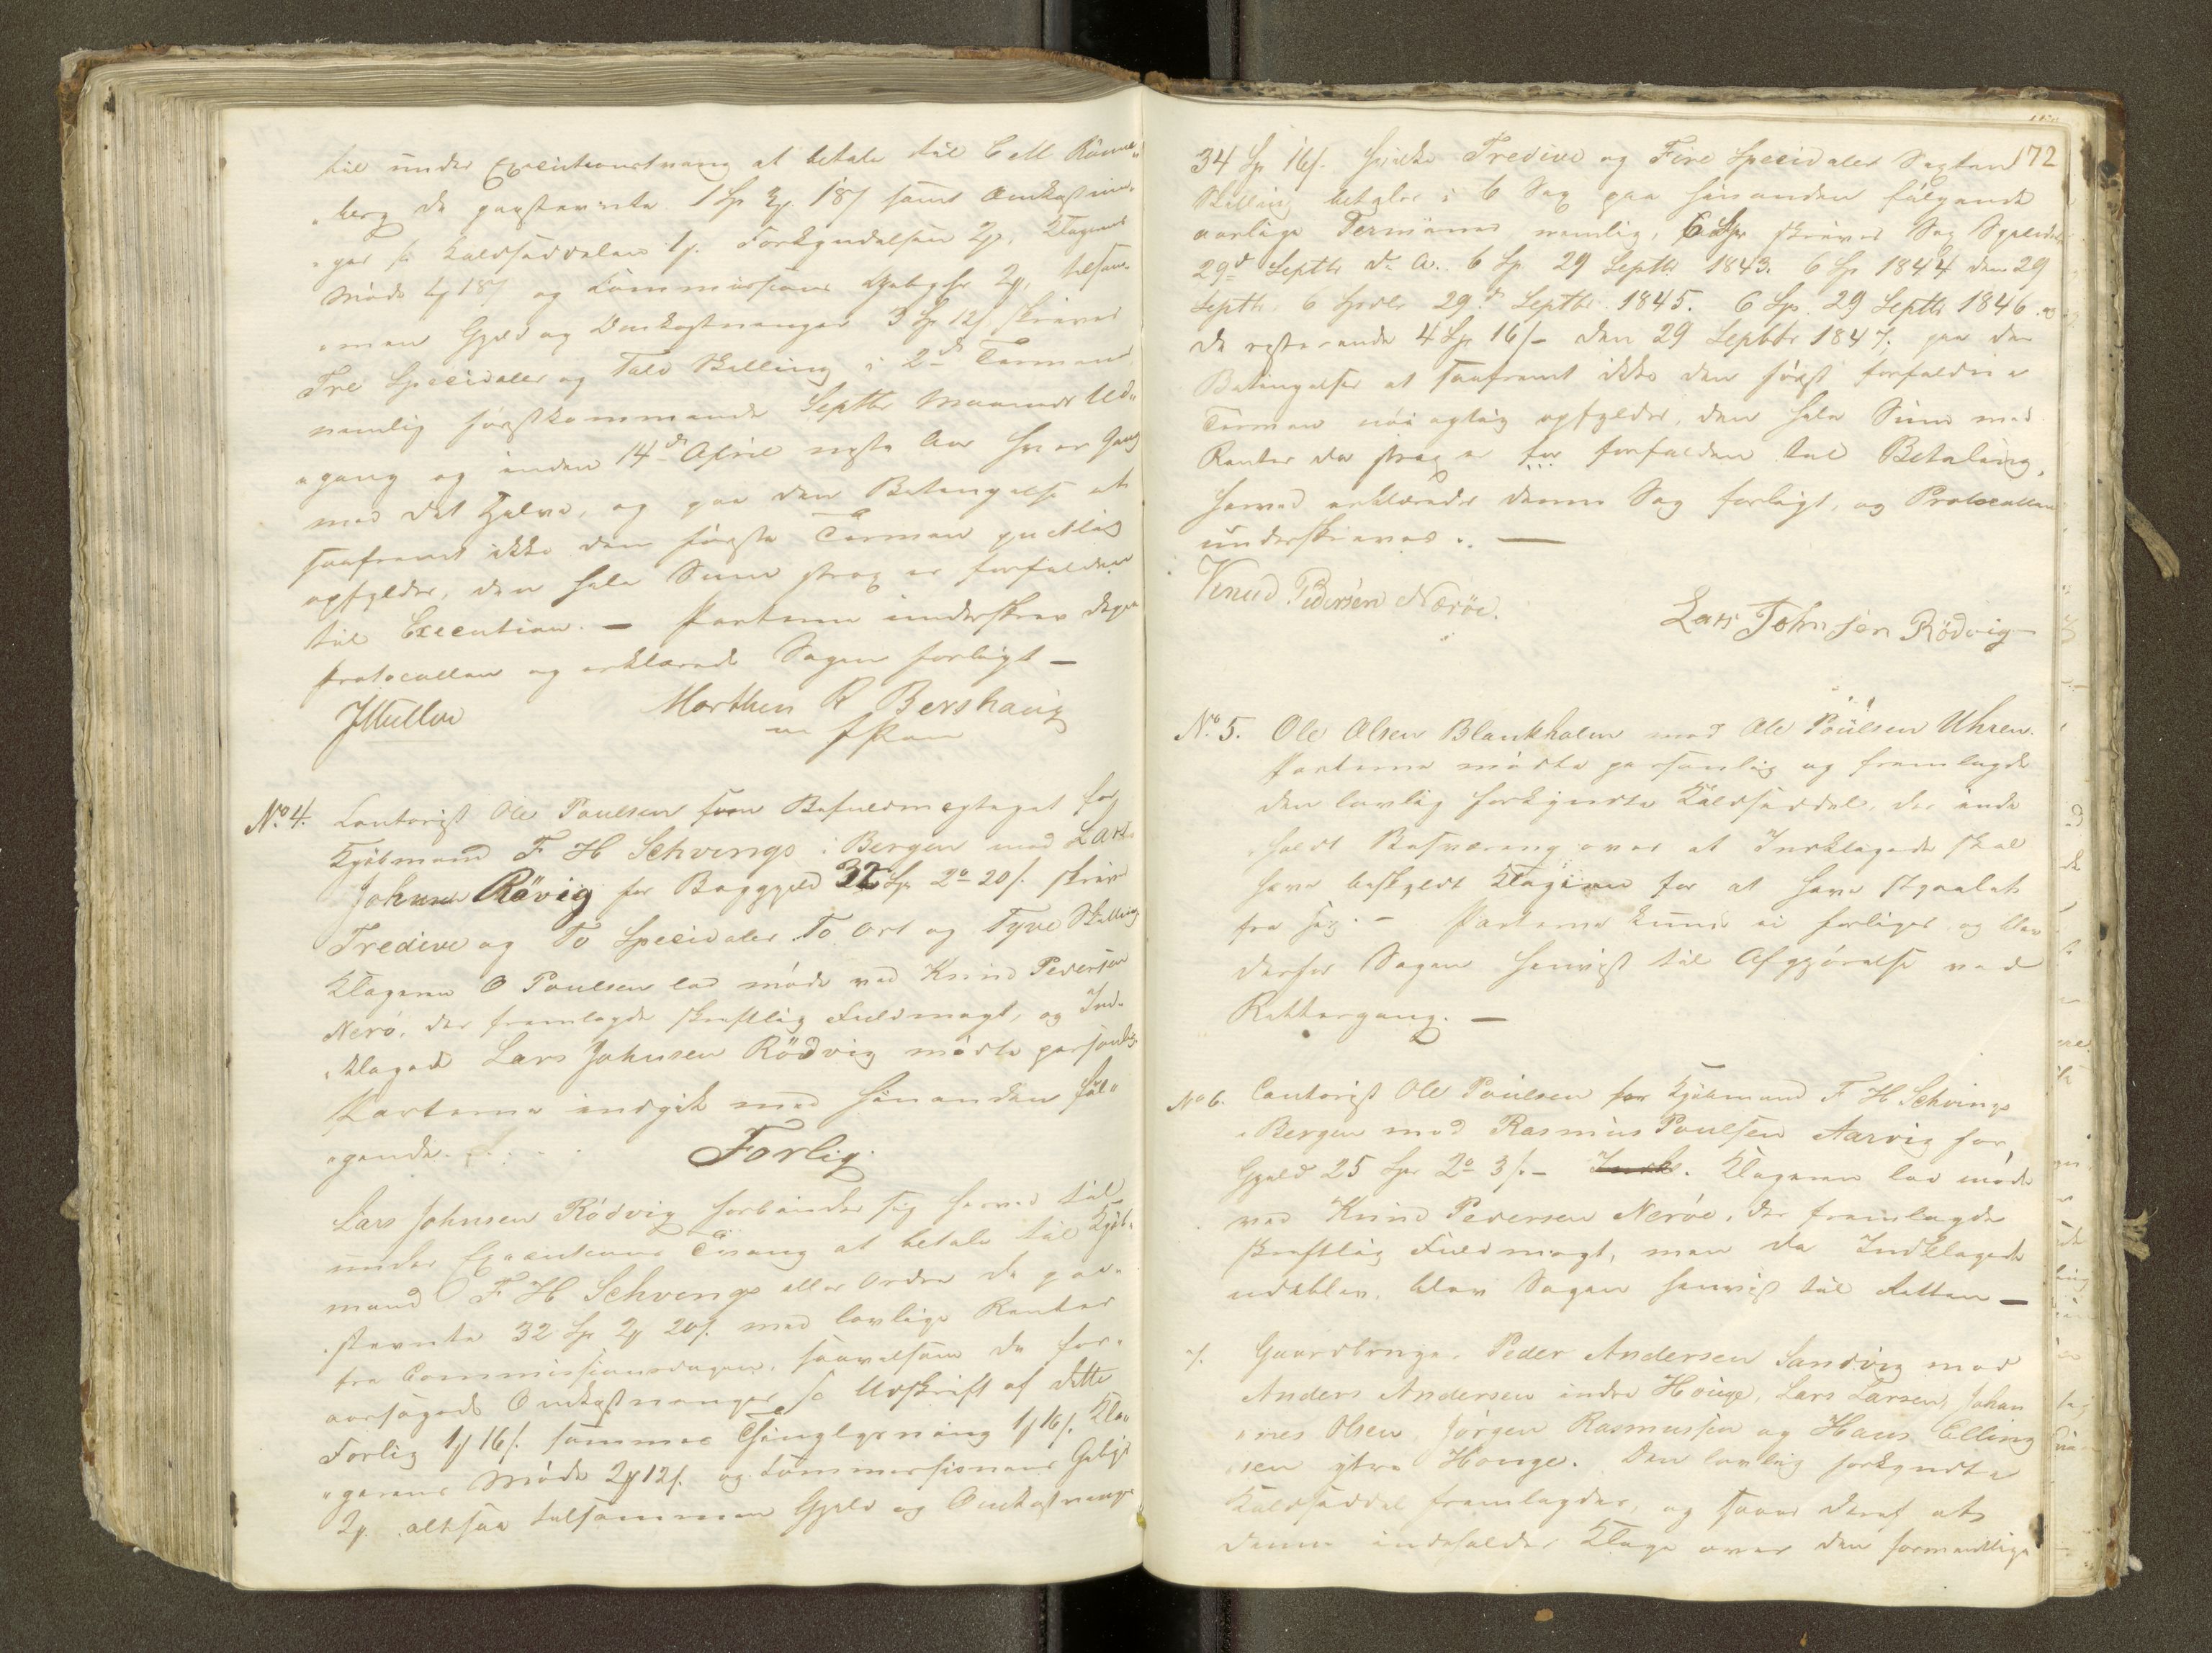 til under Executionstvang at betale til C M Rønne„
„berg de paastævnte 1 Sp 3 18 s samt Omkostnin„
„ger for Kaldsseddelen 1 Forkyndelsen 2, Klagerens
Møde 4 18 s og Commissions Gebyhr 2, tilsam„
„men Gjeld og Omkostninger 3 Sp 12 s skriver
Tre Speciedaler og Tolv Skilling i 2de Terminer
nemlig førstkommende Septbr Maaneds Ud„
„gang og inden 14de April neste Aar hver Gang
med det Halve, og paa den Betingelse at
saafremt ikke den første Termin punctlig
opfyldes, den hele Sum strax er forfalden
til Execution. — Parterne underskrev derpaa
Protocollen og erklærede Sagen forligt —
JMuller Morthen R Bershaug
No. 4. Cantorist Ole Poulsen som Befuldmegtiget for
Kjøbmand F H Schvings i Bergen mod Lars
Johnsen Røvig for Boggjeld 32 Sp 2o 20 s. skriver
Tredive og To Speciedaler To Ort og Tyve Skilling
Klageren O Poulsen lod møde ved Knud Pedersen
Nerø, der fremlagde skriftlig Fuldmagt, og Ind„
„klagede Lars Johnsen Rødvig mødte personlig
Parterne indgik med hinanden føl„
„gende
Forlig.
Lars Johnsen Rødvig forbinder sig herved til
under Executions Tvang at betale til Kjøb„
mand F H Schvings eller Ordre de paa„
„stevnte 32 Sp 2 20 s. med lovlige Renter
fra Commissionsdagen, saavelsom de for„
aarsagede Omkostninger for Udskrift af dette
Forlig 1 16 s. sammes Thinglysning 1 16 s. Kla„
„gerens Møde 2 12 s. og Commissionens Gebyr
2. altsaa tilsammen Gjeld og Omkostninger
172
34 Sp 16 s. hvilke Tredive og Fire Speciedaler Sexten
Skilling betales i 6 Sex paa hinanden følgende
aarlige Terminer nemlig, 6 Spr skriver Sex Speciedaler
29de Septbr d. A. 6 Sp 29 Septbr 1843. 6 Sp 1844 den 29
Septbr. 6 Spdlr 29de Septbr 1845. 6 Sp. 29 Septbr 1846. og
de resterende 4 Sp 16 s - den 29 Septbr 1847. paa den
Betingelse at saafremt ikke den først forfaldne
Termin nøiagtig opfyldes, den hele Sum med
Renter da strax er for forfalden til Betaling,
Herved erklæredes denne Sag forligt, og Protocollen
underskreves. —
Knud Pedersen Nerøe. Lars Johnsen Rødvig
No. 5. Ole Olsen Blankholm mod Ole Poulsen Uhren.
Parterne mødte personlig og fremlagde
den lovlig forkyndte Kaldseddel, der inde
„holdt Besværing over at Indklagede skal
have beskyldt Klageren for at have stjaalet
fra sig. — Parterne kunde ei forliges og blev
derfor Sagen henvist til Afgjørelse ved
Rettergang. —
No 6. Cantorist Ole Poulsen for Kjøbmand F H Schvings
i Bergen mod Rasmus Poulsen Aarvig for
Gjeld 25 Spr 2o 3 s. - Klageren lod møde
ved Knud Pedersen Nerøe, der fremlagde
skriftlig Fuldmagt, men da Indklagede
udeblev, blev Sagen henvist til Retten —
7. Gaardbruger Peder Andersen Sandvig mod
Anders Andersen indre Houge, Lars Larsen, Johan
„nes Olsen, Jørgen Rasmussen og Hans Elling
„sen ytre Houge. Den lovlig forkyndte
Kaldseddel fremlagdes, og saaes deraf at
denne indeholder Klage over den formentlige